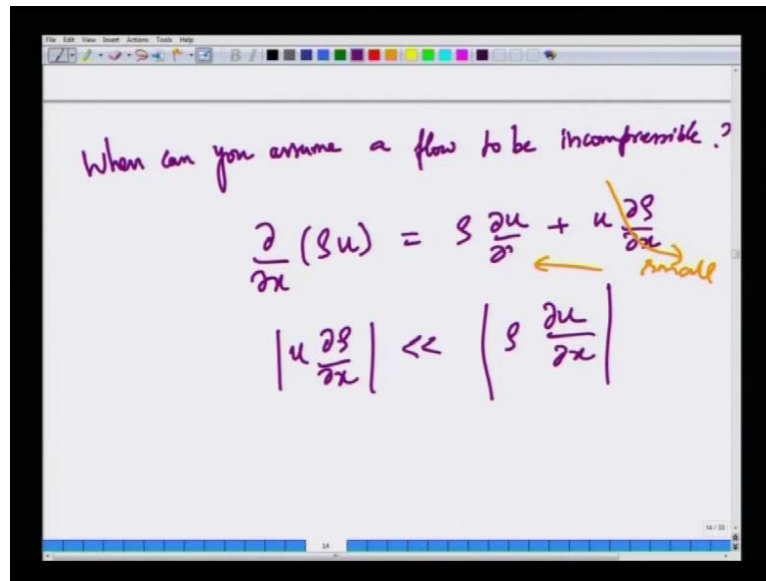 File Edit View Insert Actions Tools Help
When can you assume a flow to be incompressible ?
∂/∂x (ρu) = ρ ∂u/∂x + u ∂ρ/∂x
small
|u ∂ρ/∂x| << |ρ ∂u/∂x|
14